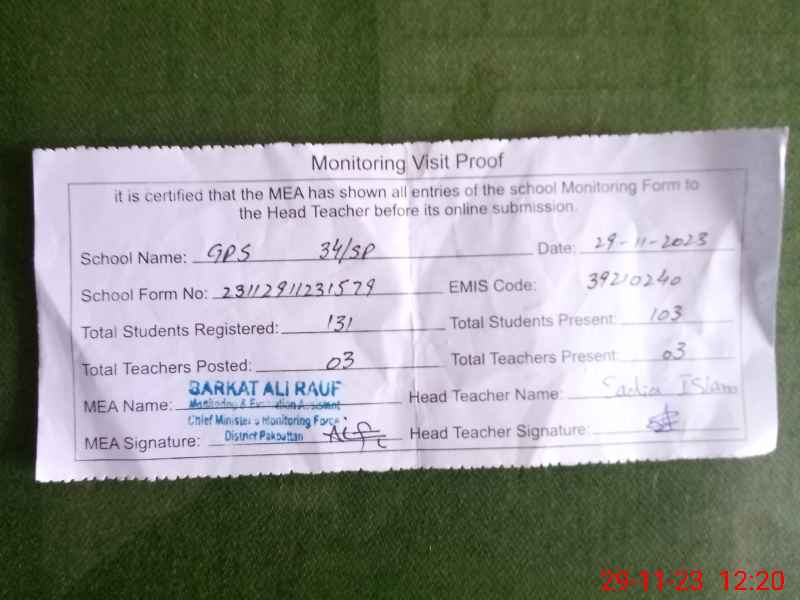 Monitoring Visit Proof
it is certified that the MEA has shown all entries of the school Monitoring Form to
the Head Teacher before its online submission.
School Name: GPS 34/SP Date: 29-11-2023
School Form No: 23112911231579 EMIS Code: 39210240
Total Students Registered: 131 Total Students Present: 103
Total Teachers Posted: 03 Total Teachers Present: 03
BARKAT ALI RAUF
MEA Name: Head Teacher Name: Sadia Islam
Monitoring & Evaluation Assistant
Chief Minister's Monitoring Force
District Pakpattan
MEA Signature: Head Teacher Signature:
29-11-23 12:20